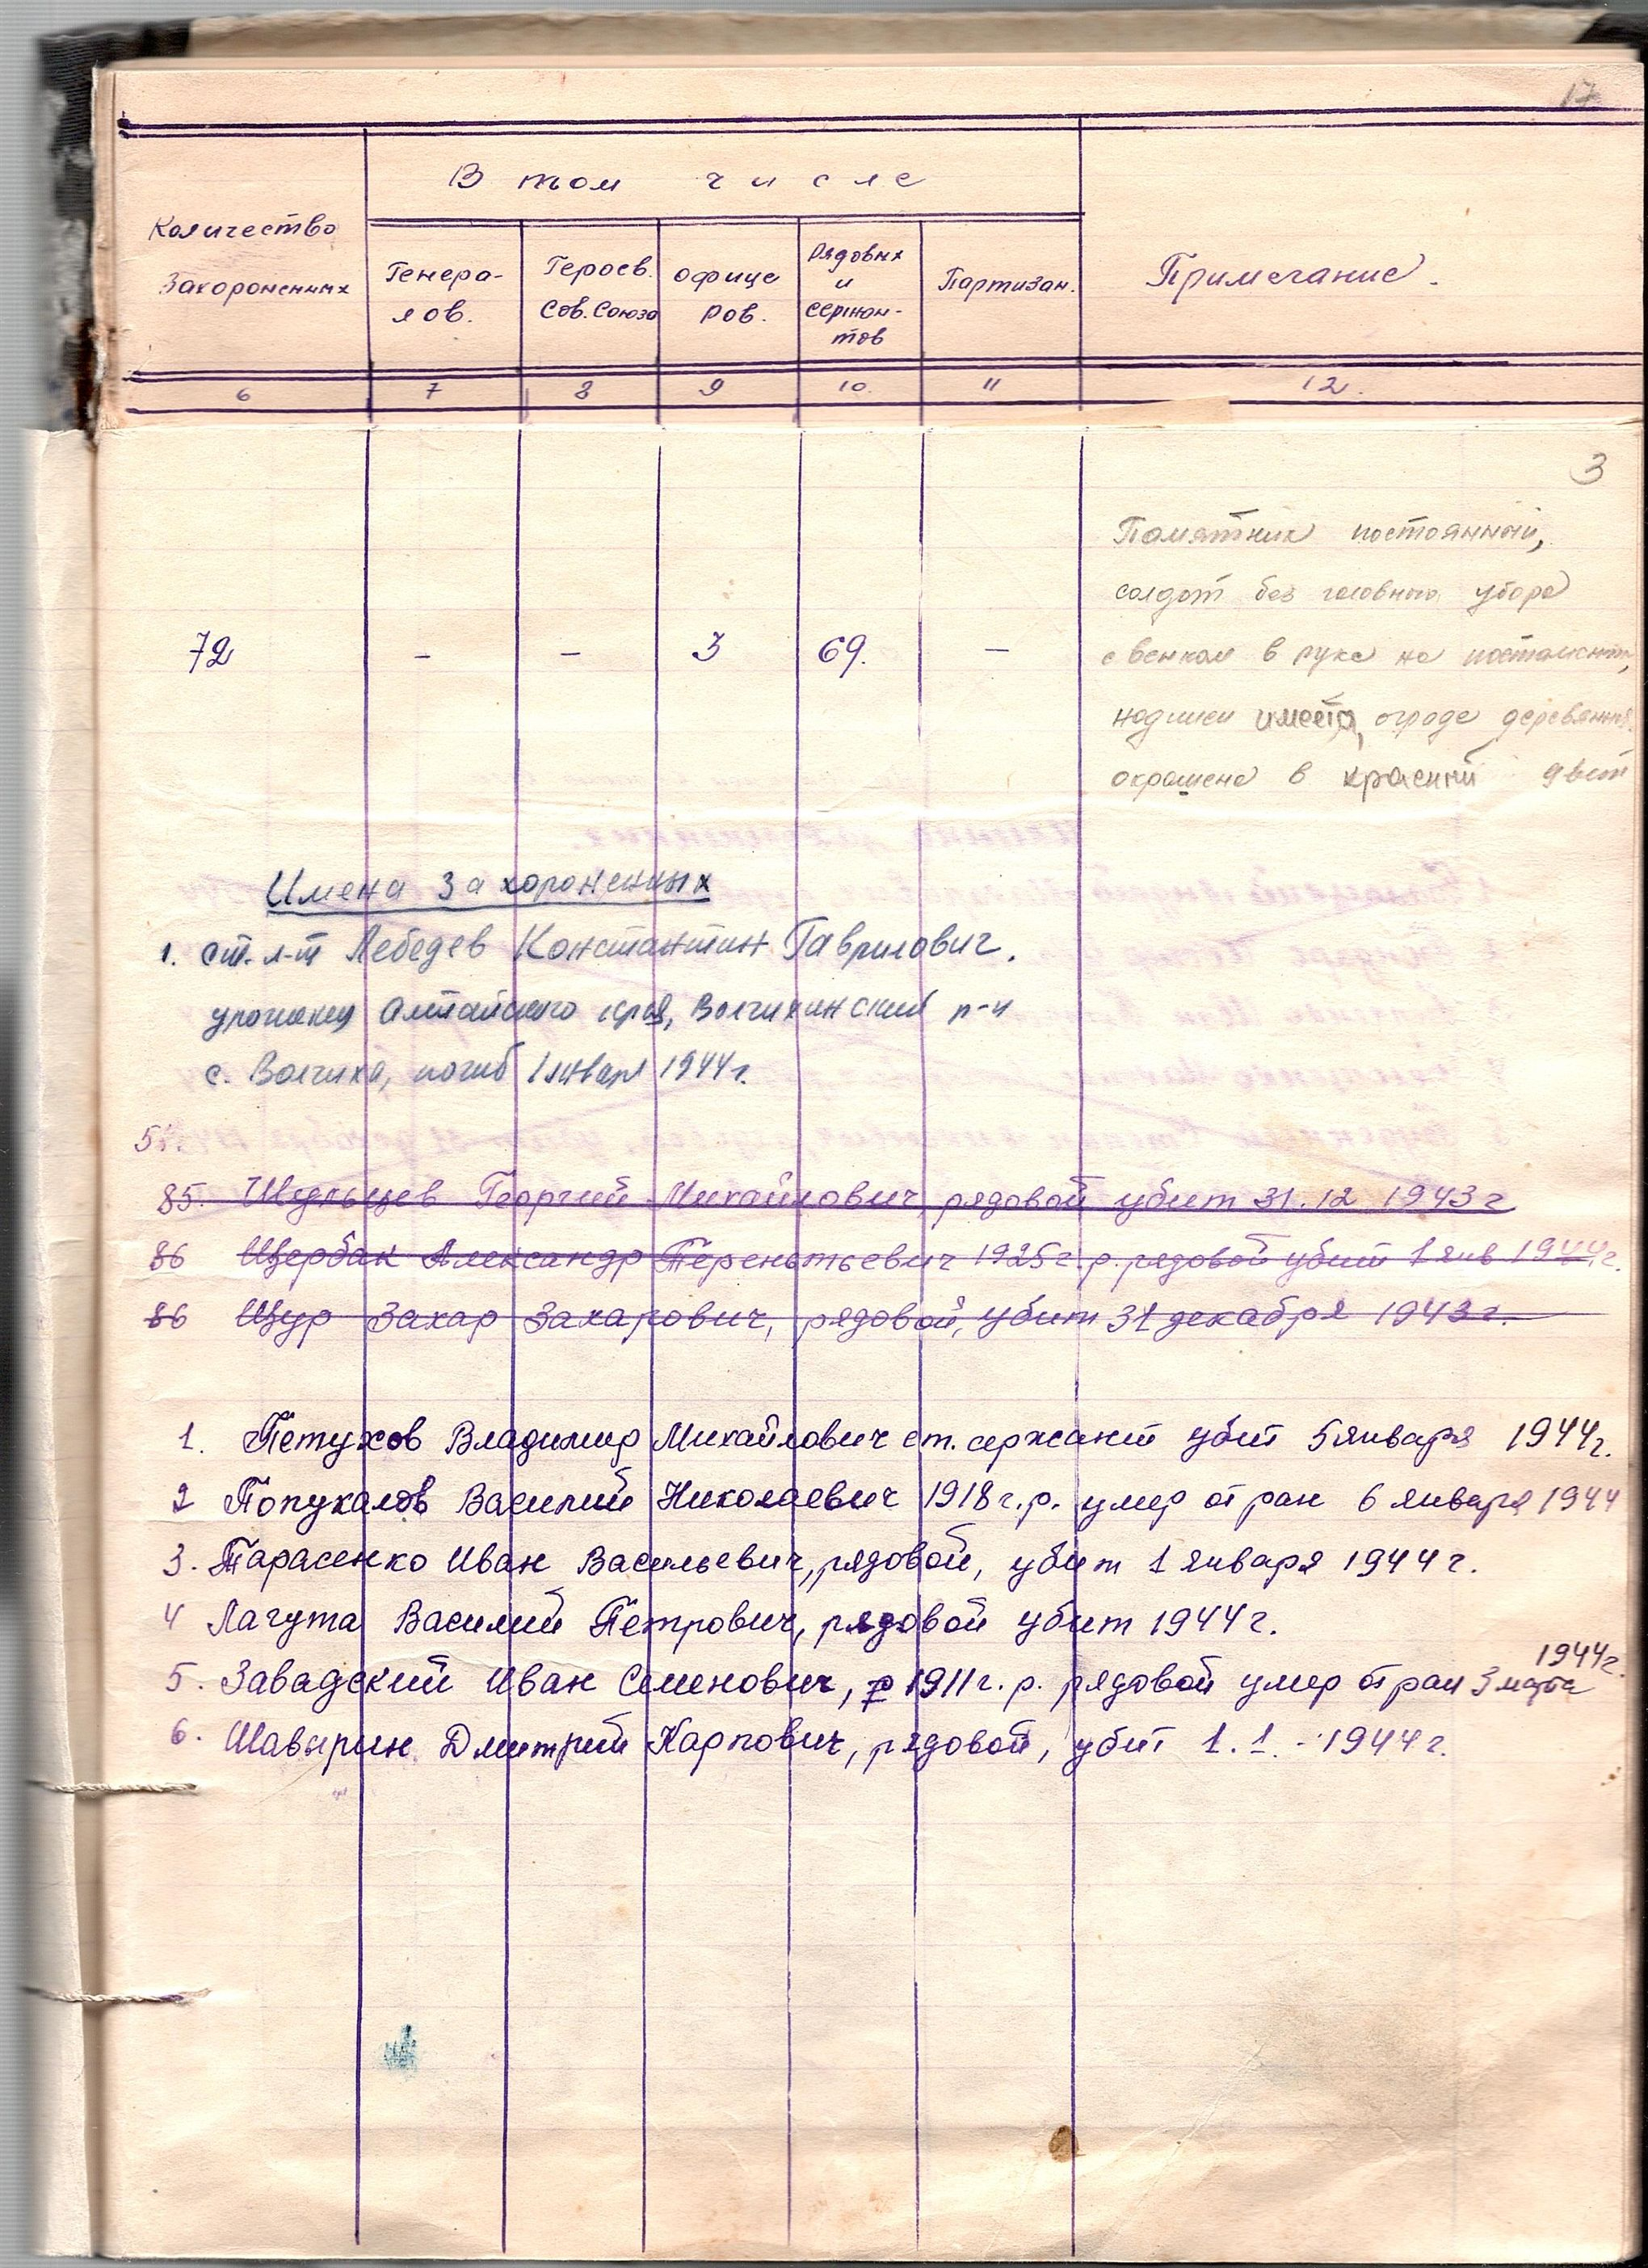 17
В том числе
Количество
Захороненных
Генера-
лов.
Героев.
Сов. Союза
Офице
ров.
Рядовых
и
сержан-
тов
Партизан.
Примечание.
6 7 8 9 10. 11 12.
3
Памятник постоянный,
солдат без головного убора
с венком в руке на постаменте,
надписи имеета, ограда деревянная
окрашена в красный цвет
72 - - 3 69. -
Имена захороненных
1. ст. л-т Лебедев Константин Гаврилович.
уроженец Алтайского края, Волчихинский р-н
с. Волчиха, погиб 1 января 1944 г.
51.
85. Георгий Михайлович, рядовой убит 31.12 1943 г
86 Щербак Александр Терентьевич 1925 г.р. рядовой убит 1 янв 1944 г.
86 Щур Захар Захарович, рядовой, убит 31 декабря 1943 г.
1. Петухов Владимир Михайлович ст. сержант убит 5 января 1944 г.
2 Попукалов Василий Николаевич 1918 г.р. умер от ран 6 января 1944
3. Тарасенко Иван Васильевич, рядовой, убит 1 января 1944 г.
4 Лагута Василий Петрович, рядовой убит 1944 г.
5. Завадский Иван Семенович, р 1911 г.р. рядовой умер от ран 3 марта 1944 г.
6. Шавырин Дмитрий Карпович, рядовой, убит 1.1.-1944 г.